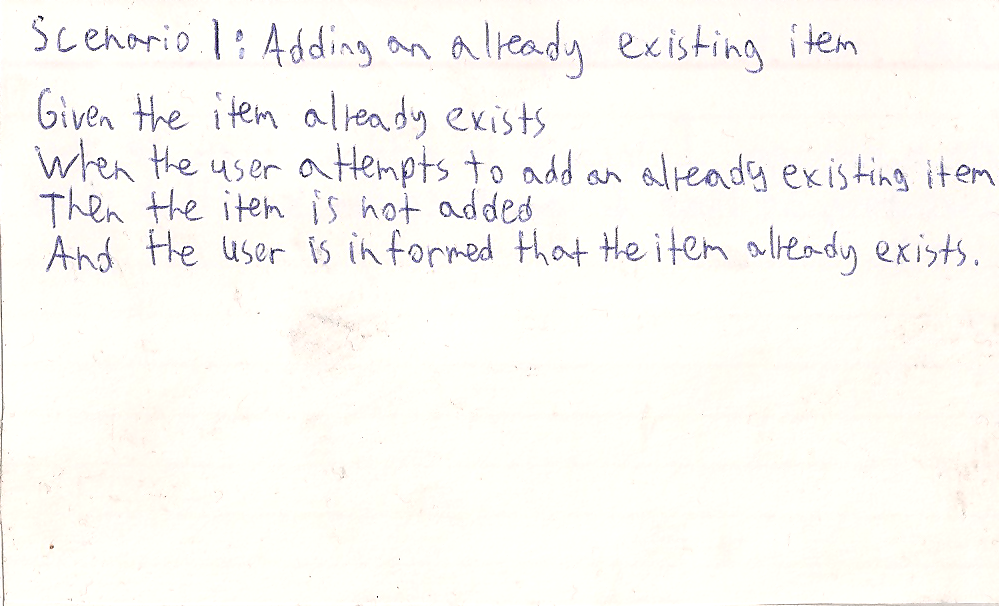 Scenario 1: Adding an already existing item
Given the item already exists
When the user attempts to add an already existing item
Then the item is not added
And the user is informed that the item already exists.